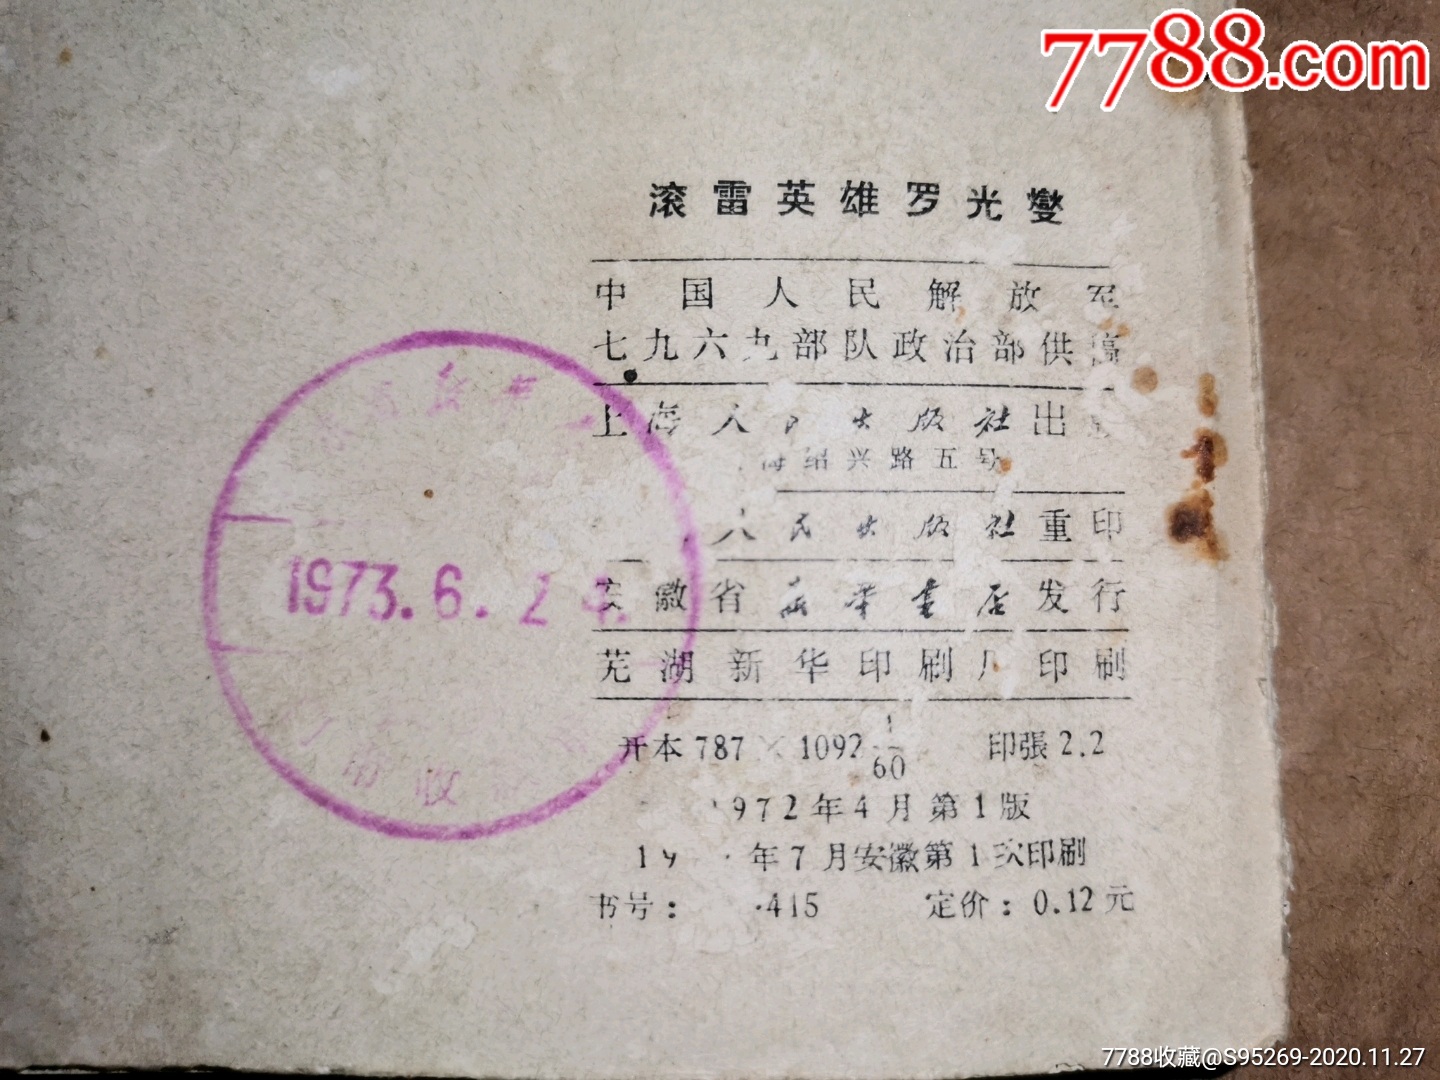 7788.com
滚雷英雄罗光燮
中国人民解放军
七九六九部队政治部供稿
上海人民出版社出
海绍兴路五号
人民出版社重印
安徽省新华书店发行
芜湖新华印刷厂印刷
开本787×1092 1/60 印張2.2
1972年4月第1版
19 年7月安徽第1次印刷
书号: ·415 定价:0.12元
1973.6.2
收
7788收藏@S95269-2020.11.27